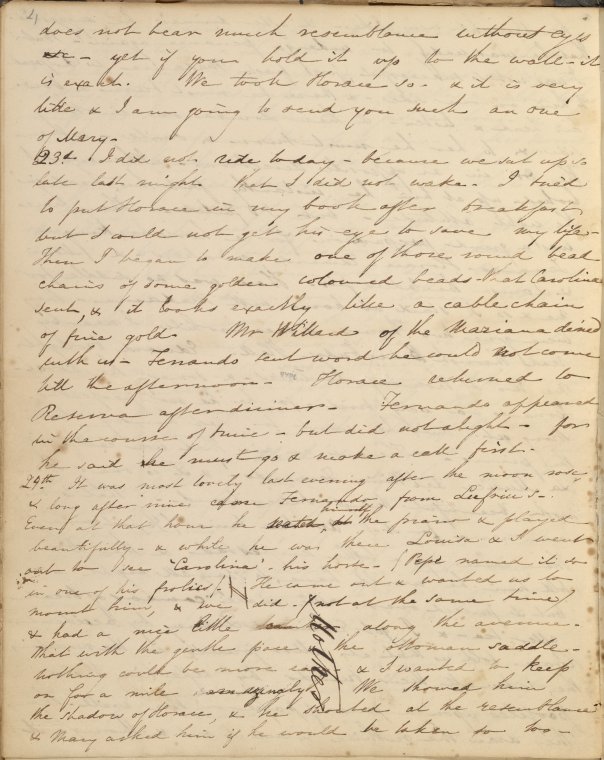 does not bear much resemblance without eyes
&c - yet if you hold it up to the wall - it
is exact. We took Horace so - & it is very
like & I am going to send you such an one
of Mary -
23d. I did not ride today - because we sat up so
late last night that I did not wake. I tried
to put Horace in my book after breakfast,
but I could not get his eye to save my life -
Then I began to make one of those round bead
chains of some golden coloured beads that Carolina
sent, & it looks exactly like a cable chain
of fine gold. Mr Willard of the Mariana dined
with us - Fernando sent word he could not come
till the afternoon - Horace returned to
Reserva after dinner - Fernando appeared
in the course of time - but did not alight - for
he said he must go & make a call first.
24th. It was most lovely last evening after the moon rose,
& long after nine came Fernando from
Even at that hour he himself the piano & played
beautifully - & while he was there Louisa & I went
out to see 'Carolina' - his horse - (Pepe named it so
in one of his frolics) - He came out & wanted us to
mount him, & we did - (not at the same time)
& had a nice little along the avenue.
That with the gentle pace the ottoman saddle -
nothing could be more & I wanted to keep
on for a mile We showed him
the shadow of Horace, & he shouted at the resemblance
& Mary asked him if he would be taken so too -